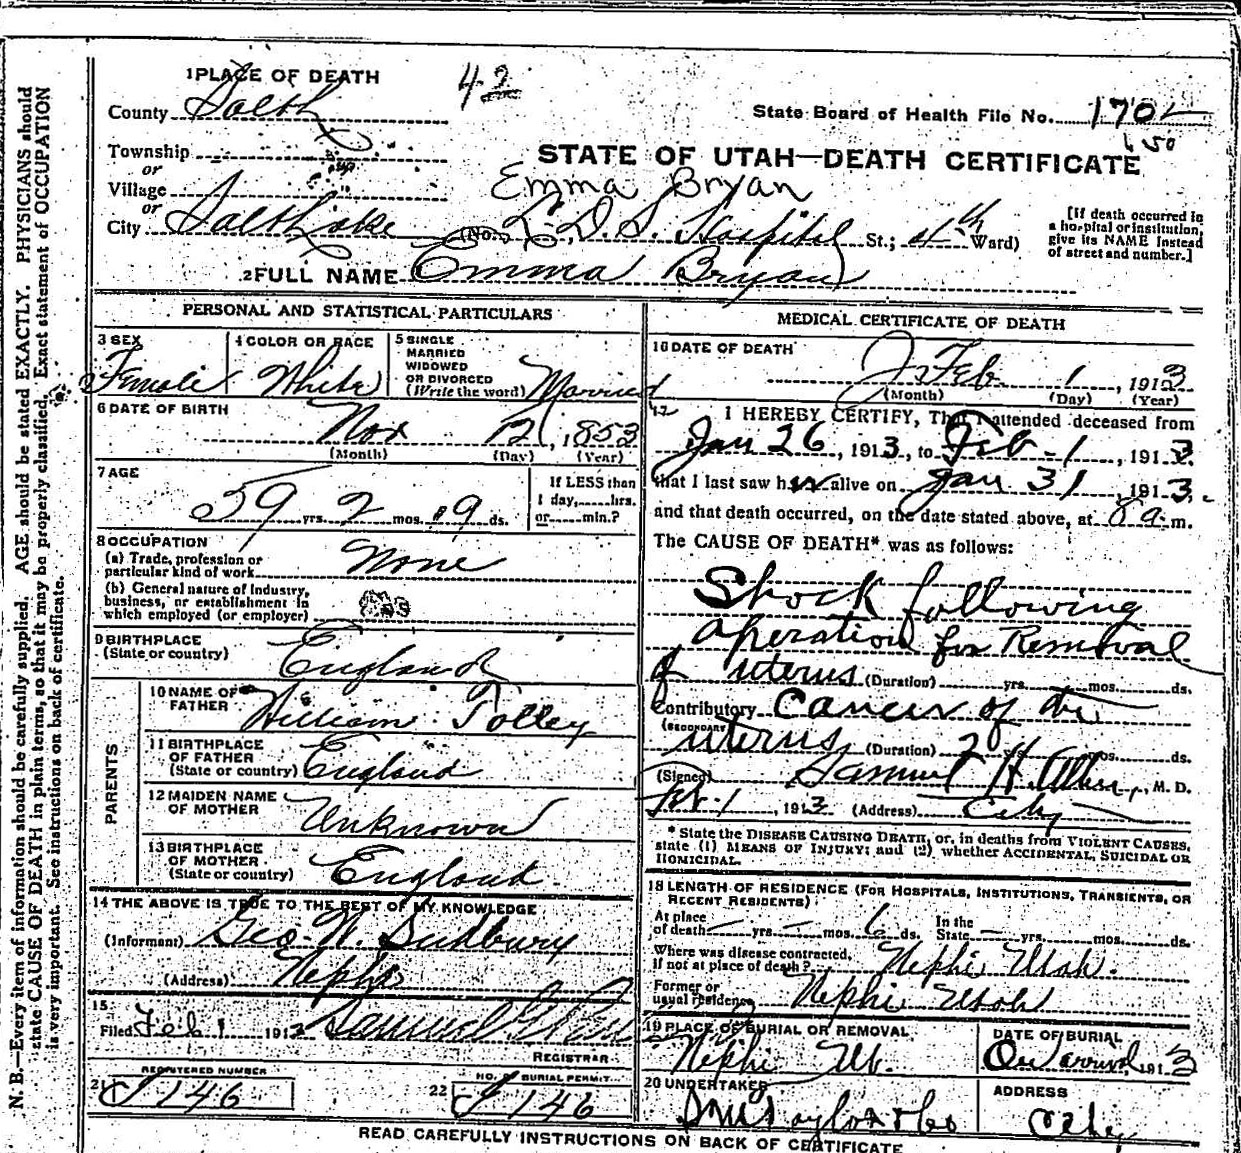 1 PLACE OF DEATH
42
County Salt L
State Board of Health File No. 1702
150
Township
or
Village
or
City Salt Lake
STATE OF UTAH—DEATH CERTIFICATE
Emma Bryan
(No. L. D. S. Hospital St.; 4th Ward)
[If death occurred in
a hospital or institution,
give its NAME instead
of street and number.]
2 FULL NAME Emma Bryan
PERSONAL AND STATISTICAL PARTICULARS
3 SEX
Female
4 COLOR OR RACE
White
5 SINGLE
MARRIED
WIDOWED
OR DIVORCED
(Write the word) Married
6 DATE OF BIRTH
Nov 12, 1853
(Month) (Day) (Year)
7 AGE
59 yrs. 2 mos. 19 ds.
If LESS than
1 day, hrs.
or min.?
8 OCCUPATION
(a) Trade, profession or
particular kind of work None
(b) General nature of Industry,
business, or establishment in
which employed (or employer)
9 BIRTHPLACE
(State or country) England
PARENTS
10 NAME OF
FATHER William Tolley
11 BIRTHPLACE
OF FATHER
(State or country) England
12 MAIDEN NAME
OF MOTHER Unknown
13 BIRTHPLACE
OF MOTHER
(State or country) England.
14 THE ABOVE IS TRUE TO THE BEST OF MY KNOWLEDGE
(Informant) Geo W. Sudbury
(Address) Nephi
15
Filed Feb 1 1913 Samuel
REGISTRAR
21 REGISTERED NUMBER
J 146
22 NO. OF BURIAL PERMIT
J 146
MEDICAL CERTIFICATE OF DEATH
16 DATE OF DEATH
Feb 1, 1913
(Month) (Day) (Year)
17 I HEREBY CERTIFY, That I attended deceased from
Jan 26, 1913, to Feb 1, 1913.
that I last saw her alive on Jan 31, 1913.
and that death occurred, on the date stated above, at 8 a m.
The CAUSE OF DEATH* was as follows:
Shock following
operation for Removal
of uterus (Duration) yrs. mos. ds.
Contributory Cancer of the
(SECONDARY)
uterus (Duration) 2 yrs. mos. ds.
(Signed) Samuel H. Allen, M. D.
Feb 1, 1913 (Address) City
* State the DISEASE CAUSING DEATH, or, in deaths from VIOLENT CAUSES,
state (1) MEANS OF INJURY; and (2) whether ACCIDENTAL, SUICIDAL OR
HOMICIDAL.
18 LENGTH OF RESIDENCE (FOR HOSPITALS, INSTITUTIONS, TRANSIENTS, OR
RECENT RESIDENTS)
At place
of death — yrs. — mos. 6 ds. In the
State — yrs. mos. ds.
Where was disease contracted,
if not at place of death? Nephi Utah.
Former or
usual residence Nephi Utah
19 PLACE OF BURIAL OR REMOVAL
Nephi Ut.
DATE OF BURIAL
On arrival 1913
20 UNDERTAKER
S M Taylor & Co
ADDRESS
City
READ CAREFULLY INSTRUCTIONS ON BACK OF CERTIFICATE
N. B.—Every item of information should be carefully supplied. AGE should be stated EXACTLY. PHYSICIANS should
state CAUSE OF DEATH in plain terms, so that it may be properly classified. Exact statement of OCCUPATION
is very important. See instructions on back of certificate.